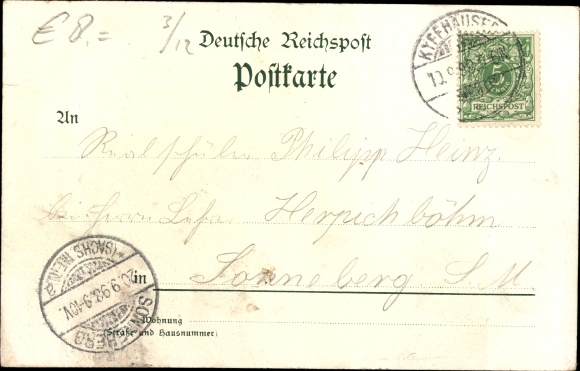 € 8.=
3/12
Deutsche Reichspost
Postkarte
KYFFHÄUSER
REICHSPOST
An
Realschüler Philipp Heinz.
bei Herrn
Herpichböhm
SONNEBERG
(SACHS. MEIN.)
20.9.98.9-10V.
in Sonneberg S. M.
Wohnung
(Straße und Hausnummer)